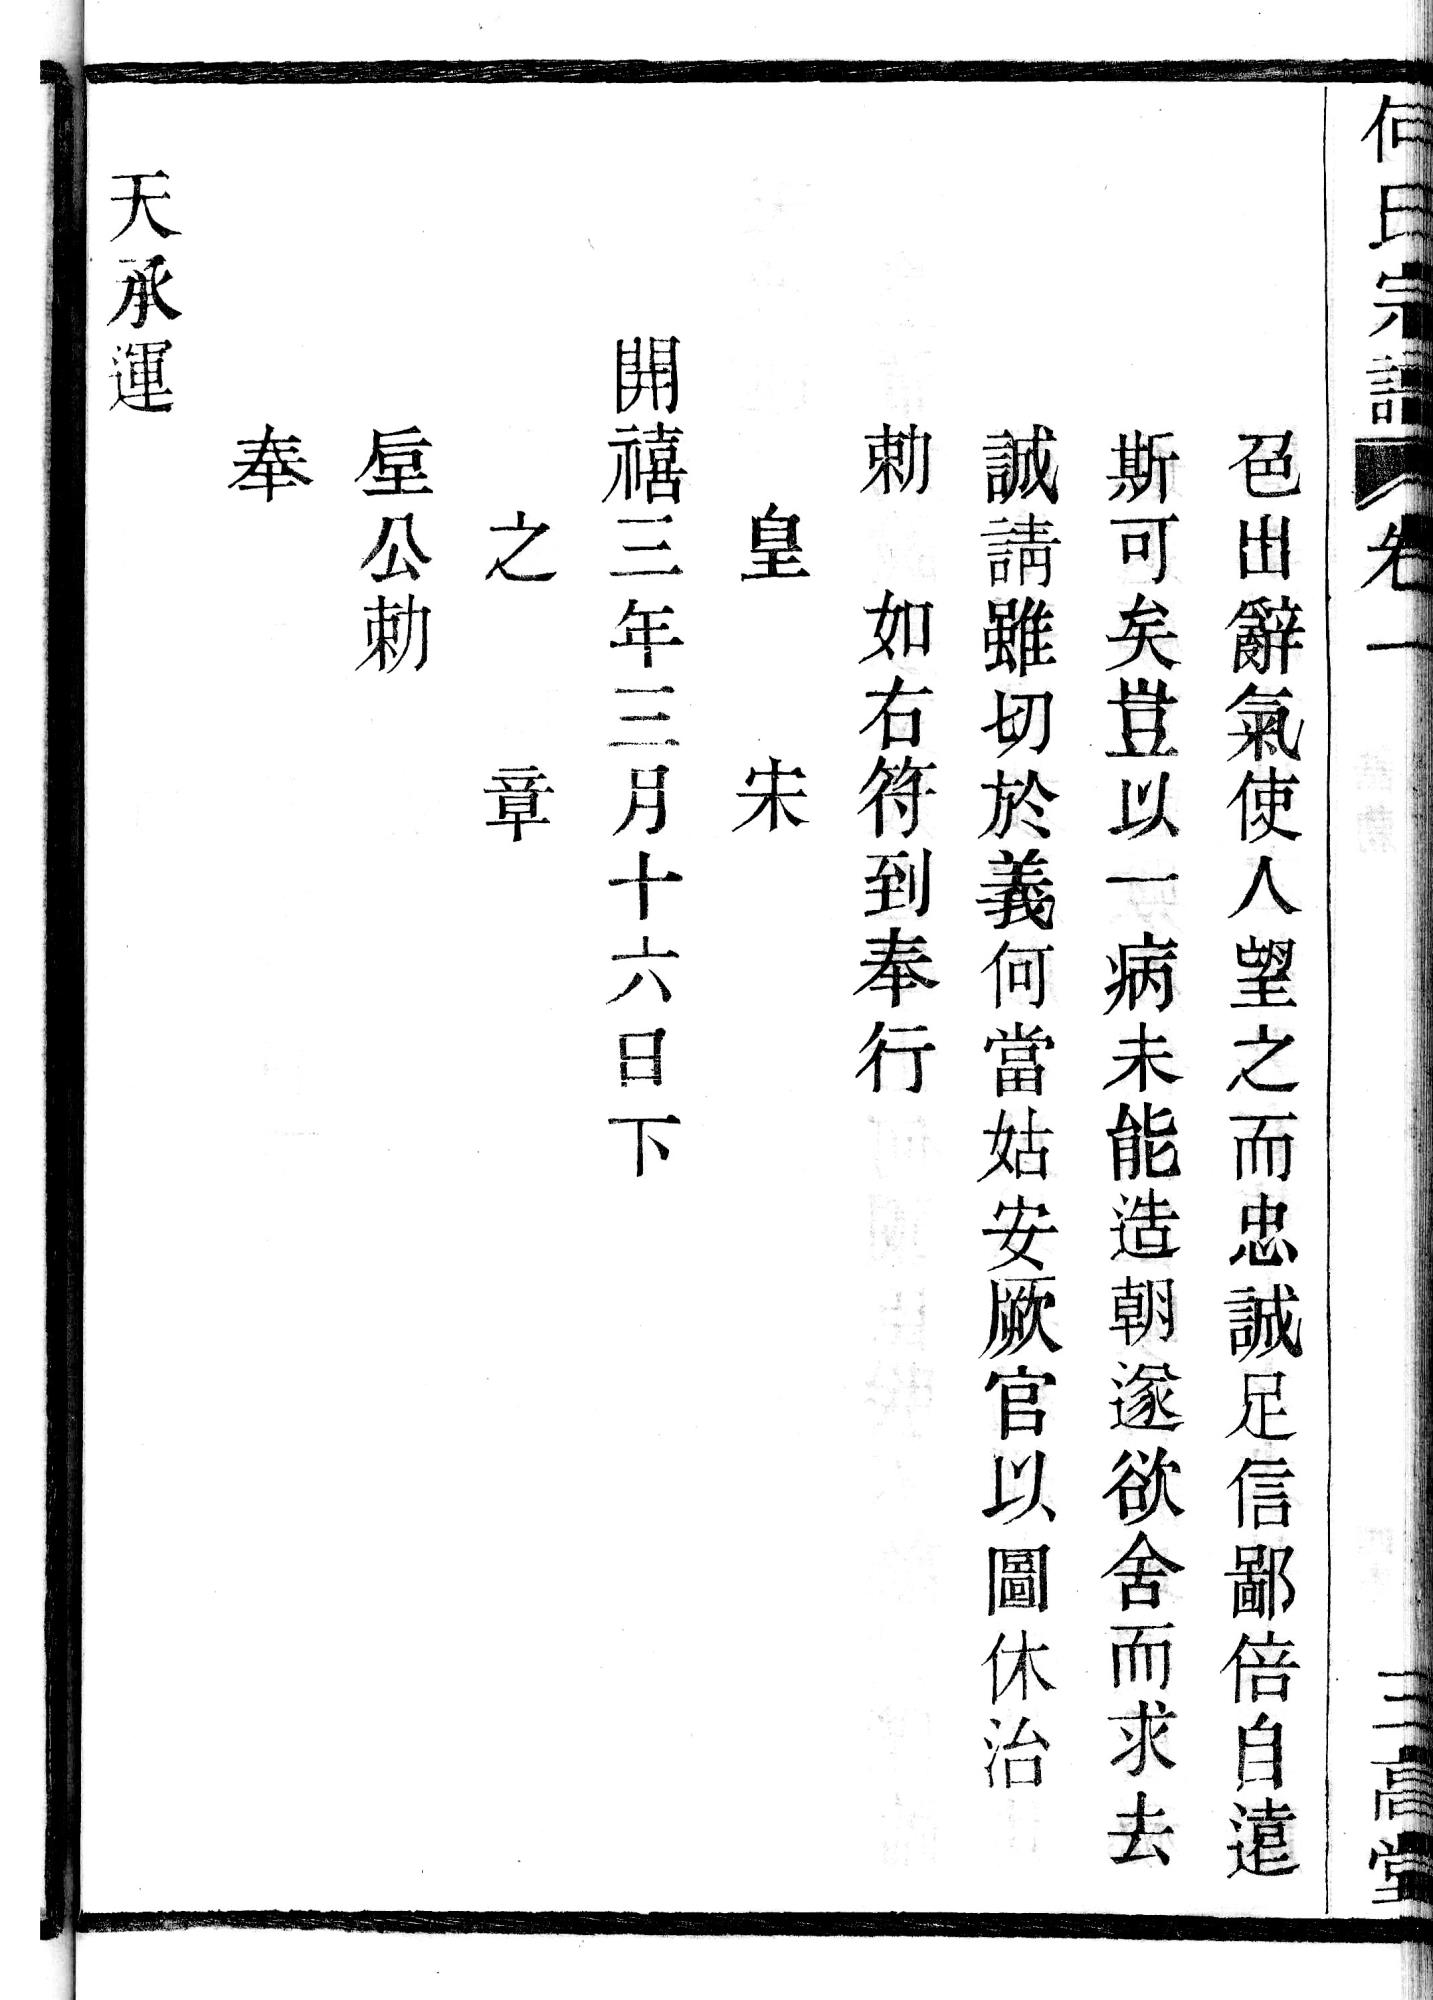 何氏宗譜 卷一 三高堂
色出辭氣使人望之而忠誠足信鄙倍自遠
斯可矣豈以一病未能造朝遂欲舍而求去
誠請雖切於義何當姑安厥官以圖休治
勅 如右符到奉行
皇 宋
開禧三年三月十六日下
之 章
垕公勅
奉
天承運